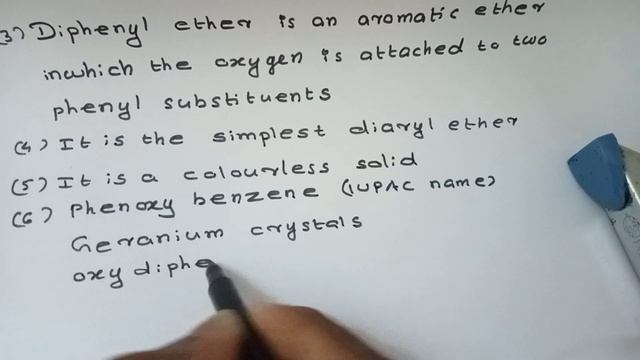 (3) Diphenyl ether is an aromatic ether
inwhich the oxygen is attached to two
phenyl substituents
(4) It is the simplest diaryl ether
(5) It is a colourless solid
(6) Phenoxy benzene (IUPAC name)
Geranium crystals
oxy diphe